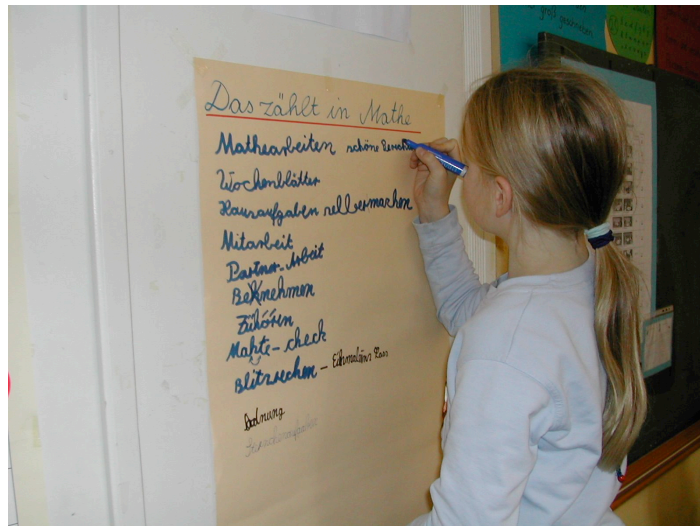 groß geschrieben
Das zählt in Mathe
Mathearbeiten schöne
Wochenblätter
Hausaufgaben selbermachen
Mitarbeit
Partner-Arbeit
Beknehmen
Zühören
Mahte-check
Blitzrechen - Einmaleins Pass
Ordnung